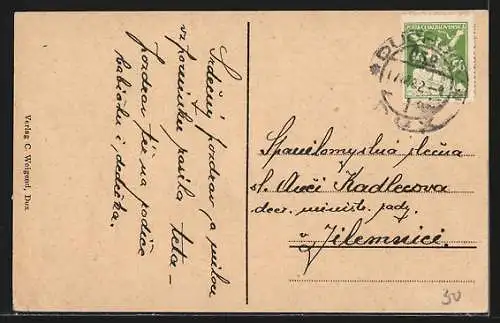 Srdečný pozdrav a milou
vzpomínku zasílá teta -
pozdrav též na rodiče
babičku i dědečka.
Verlag C. Weigend, Dux.
POŠTA ČESKOSLOVENSKÁ
DUX
Spanilomyslná slečna
sl. Anči Kadlecova
dcer. minist. rady
v Jilemnici.
30